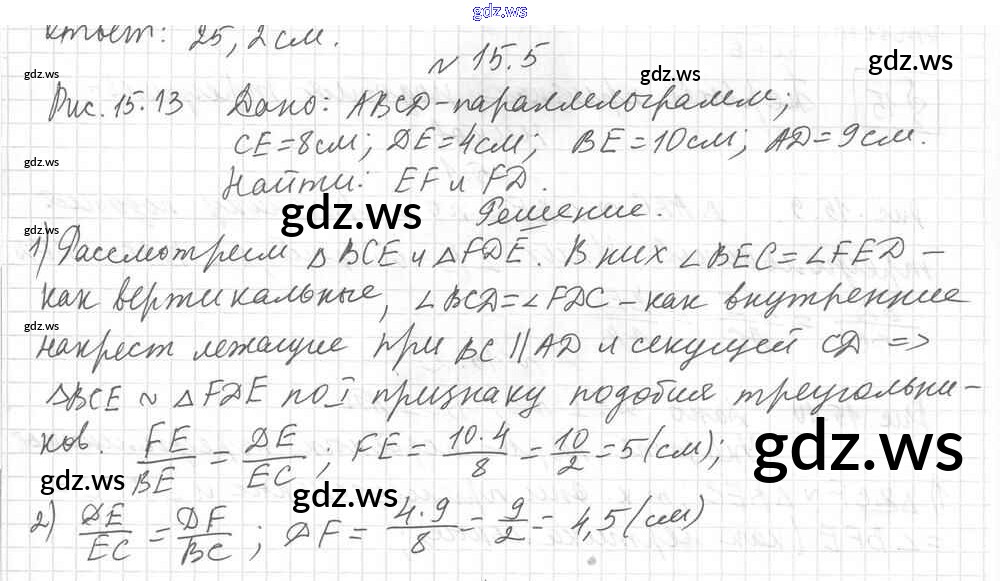 gdz.ws
ответ: 25,2 см.
gdz.ws gdz.ws gdz.ws
№ 15.5
Рис. 15.13 Дано: ABCD - параллелограмм;
CE = 8 см; DE = 4 см; BE = 10 см; AD = 9 см.
gdz.ws
Найти: EF и FD.
gdz.ws
Решение.
gdz.ws
1) Рассмотрим △BCE и △FDE. В них ∠BEC = ∠FED -
как вертикальные, ∠BCD = ∠FDC - как внутренние
gdz.ws
накрест лежащие при BC || AD и секущей CD =>
△BCE ~ △FDE по I признаку подобия треугольни-
ков. FE/BE = DE/EC; FE = 10·4/8 = 10/2 = 5 (см);
gdz.ws
gdz.ws gdz.ws
2) DE/EC = DF/BC; DF = 4·9/8 = 9/2 = 4,5 (см)
gdz.ws